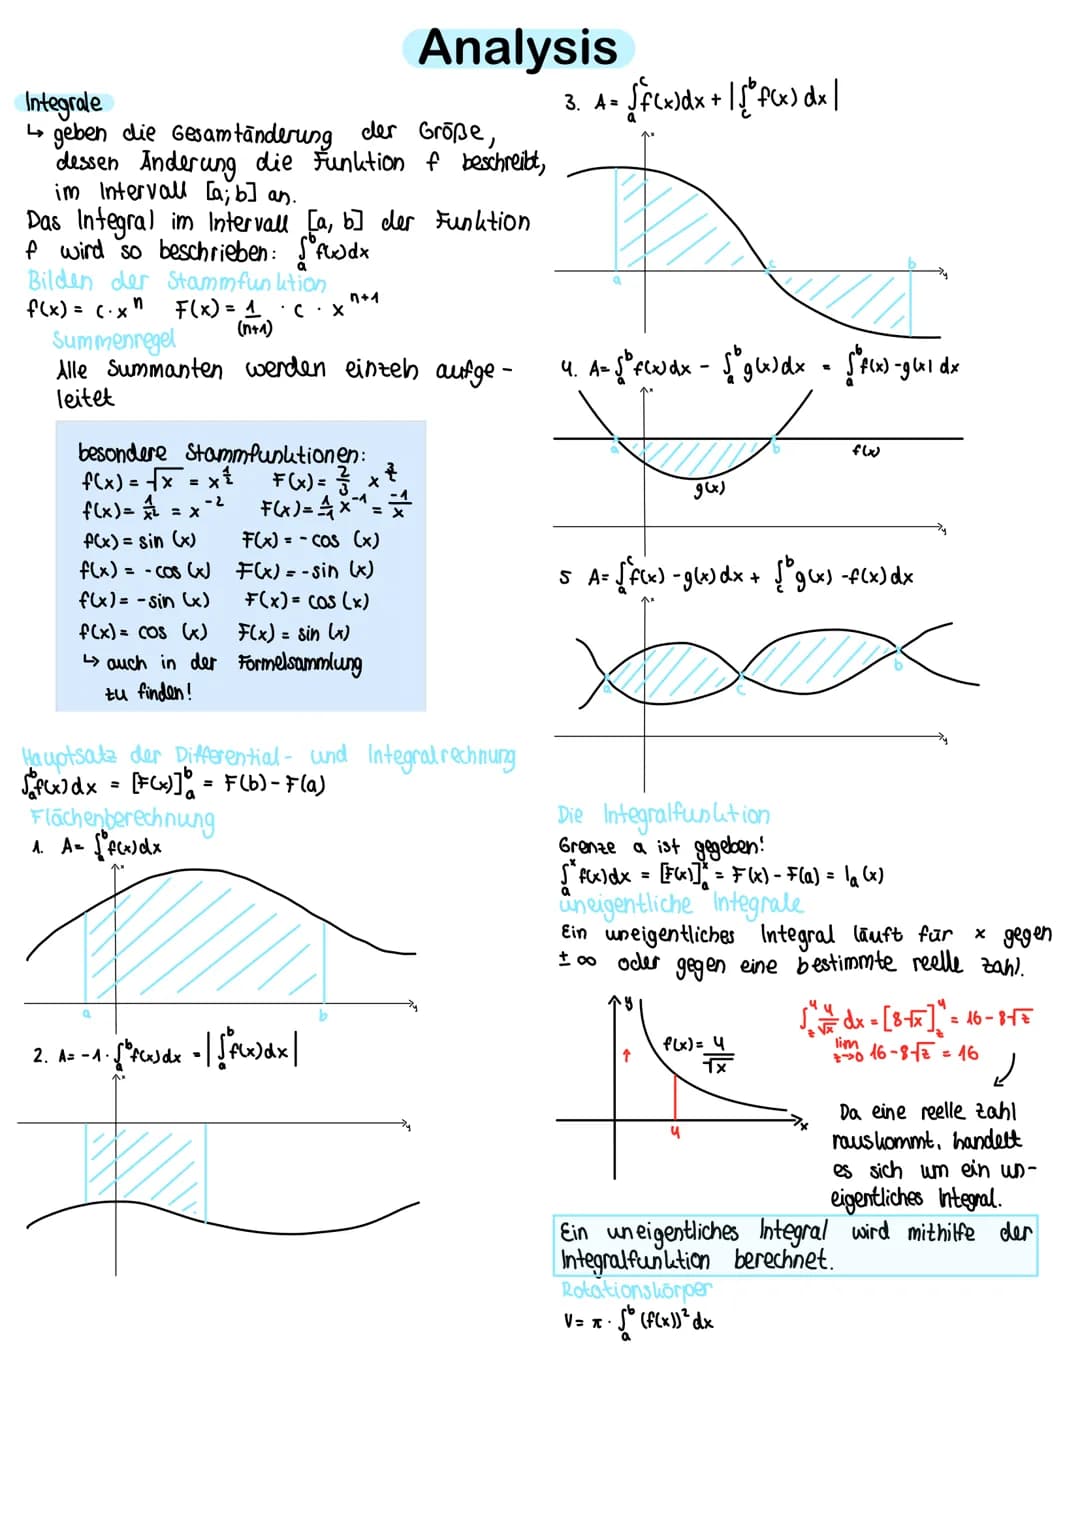 Analysis
Integrale
↳ geben die Gesamtänderung der Größe,
dessen Änderung die Funktion f beschreibt,
im Intervall [a;b] an.
Das Integral im Intervall [a, b] der Funktion
f wird so beschrieben: ∫ₐᵇ f(x)dx
Bilden der Stammfunktion
f(x) = c·xⁿ F(x) = 1/(n+1) · c · xⁿ⁺¹
Summenregel
Alle Summanten werden einzeln aufge-
leitet
besondere Stammfunktionen:
f(x) = √x = x^½ F(x) = 2/3 x^3/2
f(x) = 1/x² = x⁻² F(x) = 1/-1 x⁻¹ = -1/x
f(x) = sin (x) F(x) = - cos (x)
f(x) = - cos (x) F(x) = - sin (x)
f(x) = - sin (x) F(x) = cos (x)
f(x) = cos (x) F(x) = sin (x)
↳ auch in der Formelsammlung
zu finden!
Hauptsatz der Differential- und Integralrechnung
∫ₐᵇ f(x)dx = [F(x)]ₐᵇ = F(b) - F(a)
Flächenberechnung
1. A = ∫ₐᵇ f(x)dx
x
y
a
b
2. A = -1 · ∫ₐᵇ f(x)dx = |∫ₐᵇ f(x)dx|
x
y
3. A = ∫ₐᶜ f(x)dx + |∫_c^b f(x) dx|
x
y
a
c
b
4. A = ∫ₐᵇ f(x)dx - ∫ₐᵇ g(x)dx = ∫ₐᵇ f(x) - g(x) dx
x
a
b
f(x)
g(x)
y
5 A = ∫ₐᶜ f(x) - g(x) dx + ∫_c^b g(x) - f(x) dx
x
a
c
b
y
Die Integralfunktion
Grenze a ist gegeben!
∫ₐˣ f(x)dx = [F(x)]ₐˣ = F(x) - F(a) = Iₐ(x)
uneigentliche Integrale
Ein uneigentliches Integral läuft für x gegen
± ∞ oder gegen eine bestimmte reelle Zahl.
y
f(x) = 4/√x
x
4
∫_z^4 4/√x dx = [8√x]_z^4 = 16 - 8√z
lim z→0 16 - 8√z = 16
Da eine reelle Zahl
rauskommt, handelt
es sich um ein un-
eigentliches Integral.
Ein uneigentliches Integral wird mithilfe der
Integralfunktion berechnet.
Rotationskörper
V = π · ∫ₐᵇ (f(x))² dx